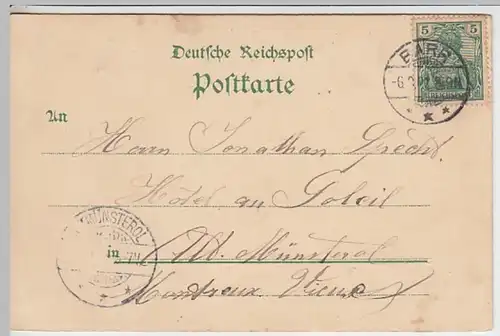 5 5
BARR
Deutsche Reichspost
Postkarte
An
Herrn Jonathan Specht
Hôtel au Soleil
in Alt Münsterol
Montreux Vieux
MÜNSTEROL